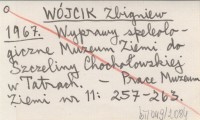 a
WÓJCIK Zbigniew
1967. Wyprawy speleolo-
giczne Muzeum Ziemi do
Szczeliny Chochołowskiej
w Tatrach. – Prace Muzeum
Ziemi nr 11: 257-263.